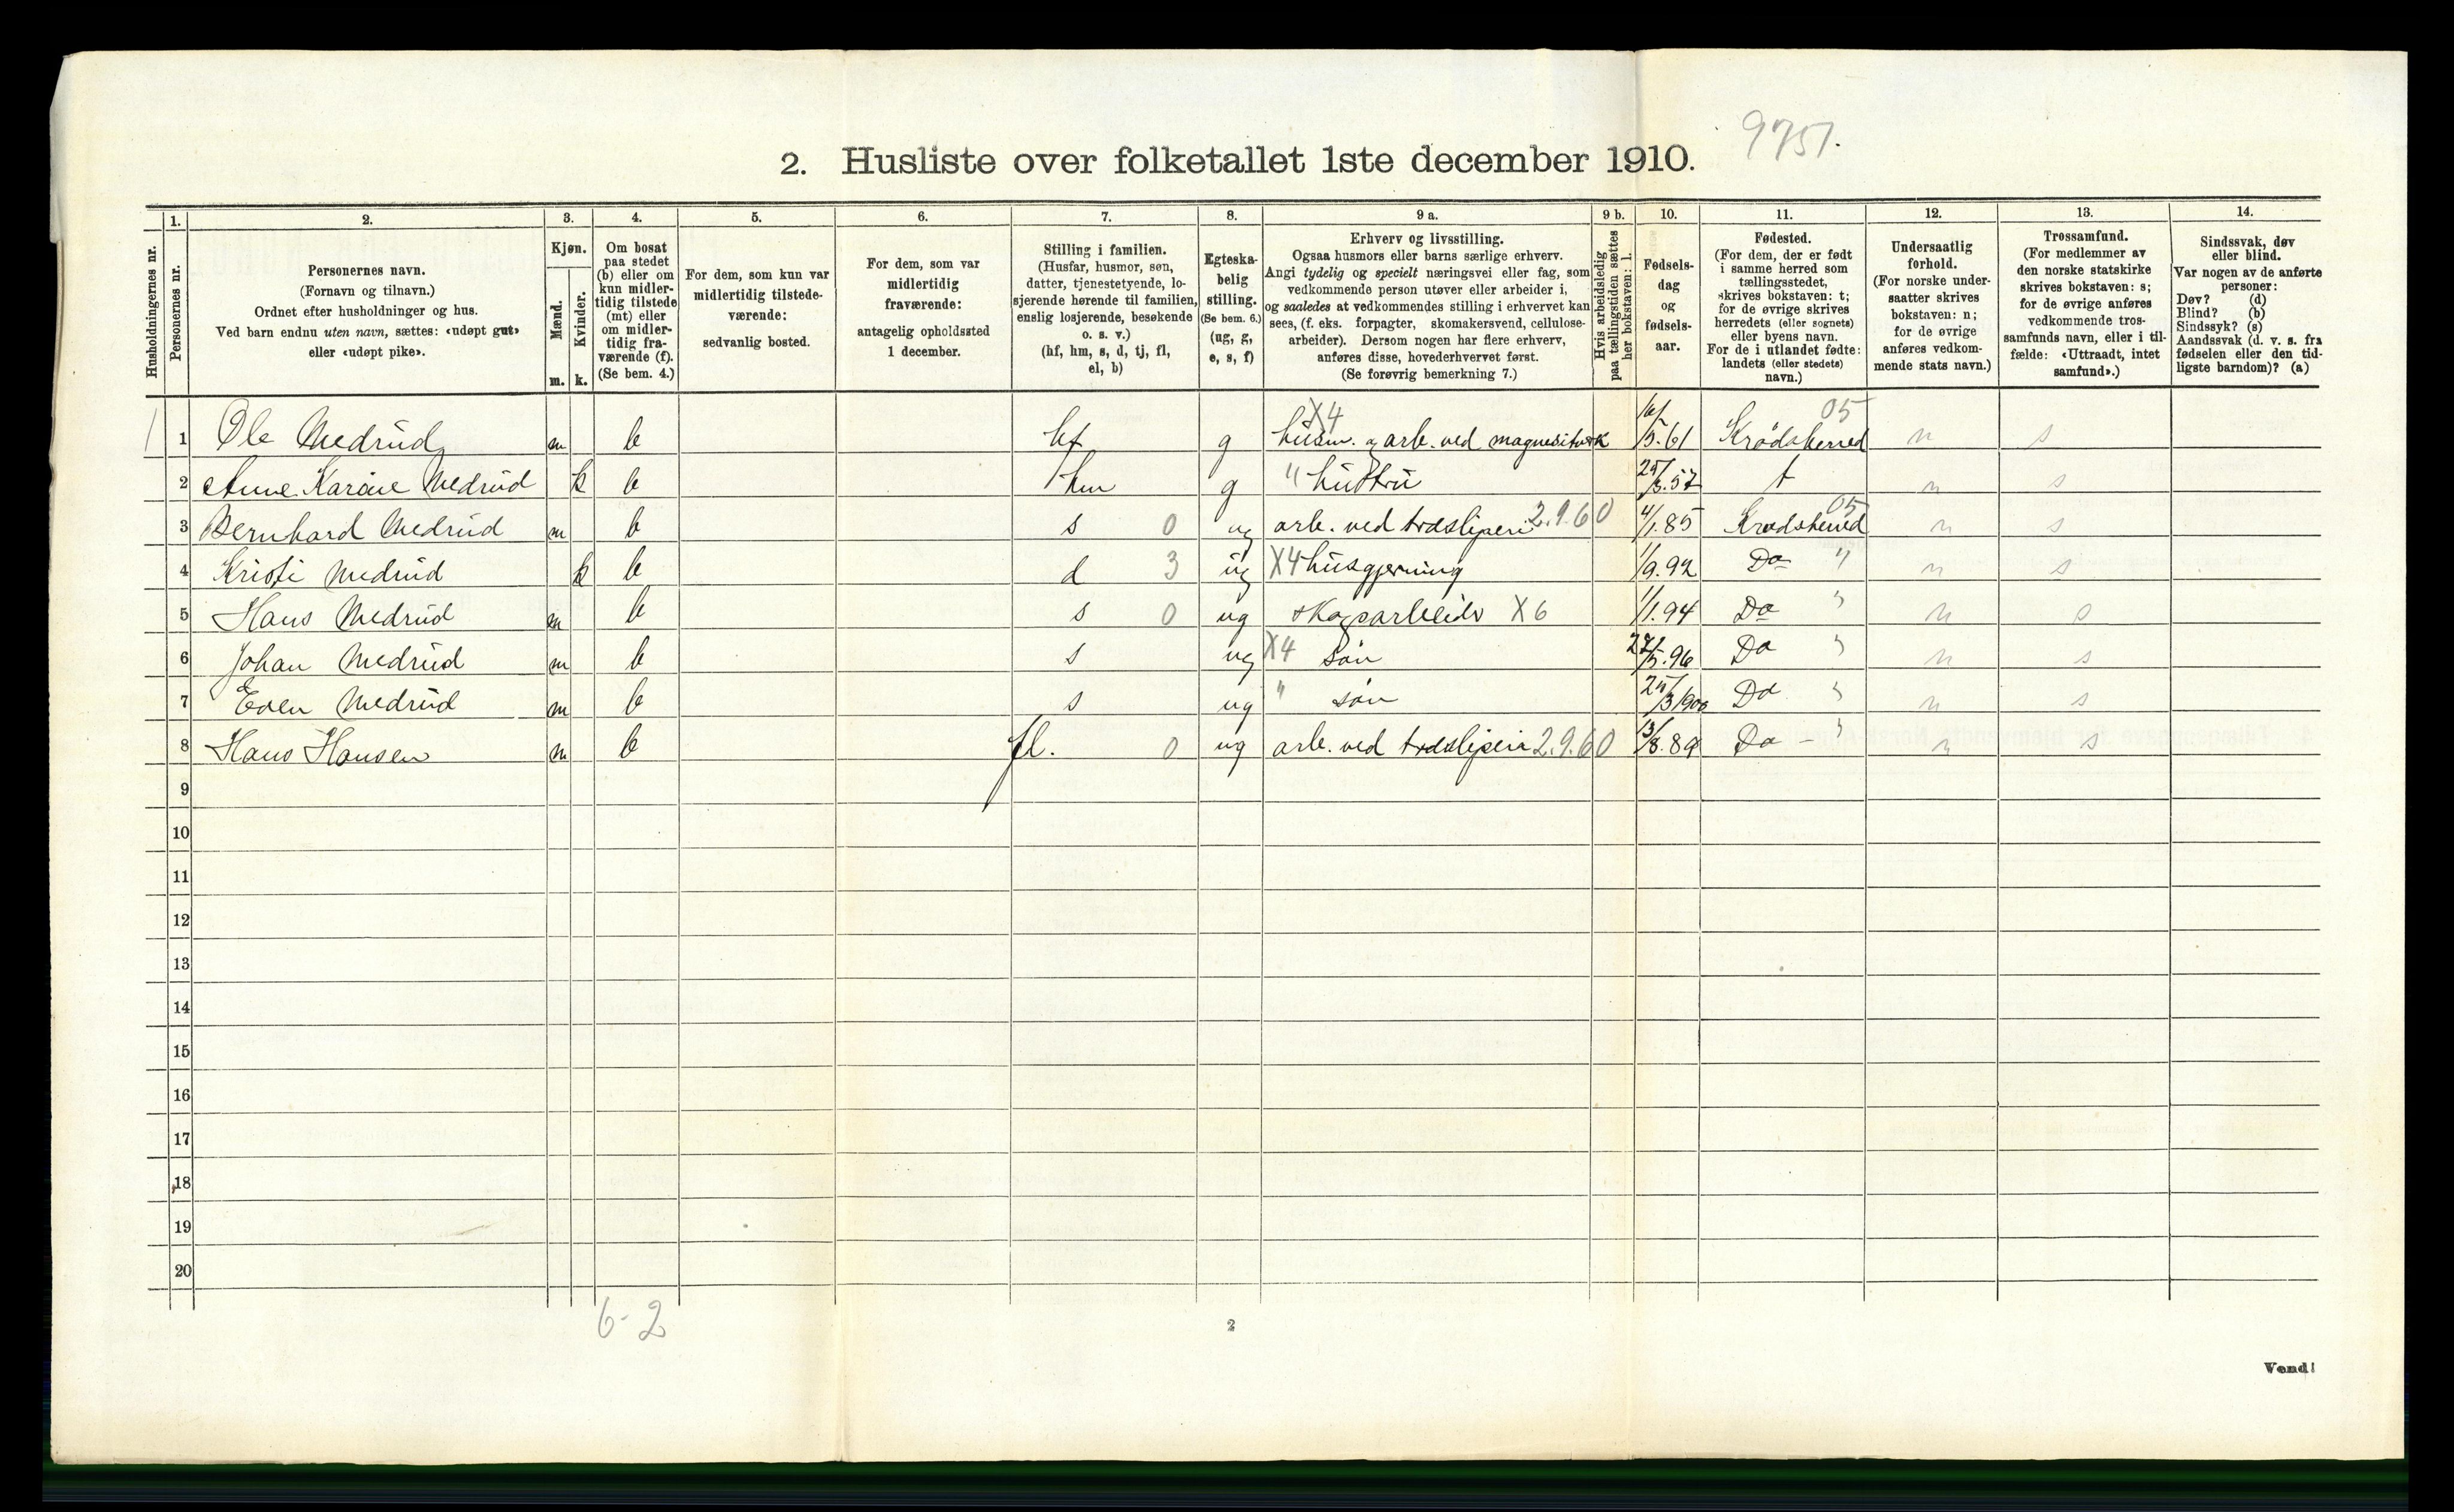 9751.
2. Husliste over folketallet 1ste december 1910.
Husholdningernes nr.
1.
Personernes nr.
2.
Personernes navn.
(Fornavn og tilnavn.)
Ordnet efter husholdninger og hus.
Ved barn endnu uten navn, sættes: «udøpt gut»
eller «udøpt pike».
3.
Kjøn.
Mænd.
Kvinder.
m. k.
4.
Om bosat
paa stedet
(b) eller om
kun midler-
tidig tilstede
(mt) eller
om midler-
tidig fra-
værende (f).
(Se bem. 4.)
5.
For dem, som kun var
midlertidig tilstede-
værende:
sedvanlig bosted.
6.
For dem, som var
midlertidig
fraværende:
antagelig opholdssted
1 december.
7.
Stilling i familien.
(Husfar, husmor, søn,
datter, tjenestetyende, lo-
sjerende hørende til familien,
enslig losjerende, besøkende
o. s. v.)
(hf, hm, s, d, tj, fl,
el, b)
8.
Egteska-
belig
stilling.
(Se bem. 6.)
(ug, g,
e, s, f)
9 a.
Erhverv og livsstilling.
Ogsaa husmors eller barns særlige erhverv.
Angi tydelig og specielt næringsvei eller fag, som
vedkommende person utøver eller arbeider i,
og saaledes at vedkommendes stilling i erhvervet kan
sees, (f. eks. forpagter, skomakersvend, cellulose-
arbeider). Dersom nogen har flere erhverv,
anføres disse, hovederhvervet først.
(Se forøvrig bemerkning 7.)
9 b.
Hvis arbeidsledig
paa tællingstiden sættes
her bokstaven: l.
10.
Fødsels-
dag
og
fødsels-
aar.
11.
Fødested.
(For dem, der er født
i samme herred som
tællingsstedet,
skrives bokstaven: t;
for de øvrige skrives
herredets (eller sognets)
eller byens navn.
For de i utlandet fødte:
landets (eller stedets)
navn.)
12.
Undersaatlig
forhold.
(For norske under-
saatter skrives
bokstaven: n;
for de øvrige
anføres vedkom-
mende stats navn.)
13.
Trossamfund.
(For medlemmer av
den norske statskirke
skrives bokstaven: s;
for de øvrige anføres
vedkommende tros-
samfunds navn, eller i til-
fælde: «Uttraadt, intet
samfund».)
14.
Sindssvak, døv
eller blind.
Var nogen av de anførte
personer:
Døv? (d)
Blind? (b)
Sindssyk? (s)
Aandssvak (d. v. s. fra
fødselen eller den tid-
ligste barndom)? (a)
1 1 Ole Medrud m b hf g X4 husm. og arb. ved magnesitverk 16/5.61 Krødsherred 05 n s
2 Anne Karine Medrud k b hm g " hustru 25/3.57 t n s
3 Bernhard Medrud m b s 0 ug arb. ved træsliperi 2.9.60 4/1.85 Krødsherred 05 n s
4 Kristi Medrud k b d 3 ug X4 husgjerning 1/9.92 Do " n s
5 Hans Medrud m b s 0 ug skogsarbeide X6 1/1.94 Do " n s
6 Johan Medrud m b s ug X4 søn 27/5.96 Do " n s
7 Even Medrud m b s ug " søn 25/3 1900 Do " n s
8 Hans Hansen m b fl. 0 ug arb. ved træsliperi 2.9.60 13/8.89 Do - " n s
9
10
11
12
13
14
15
16
17
18
19
20
6-2
2
Vend!